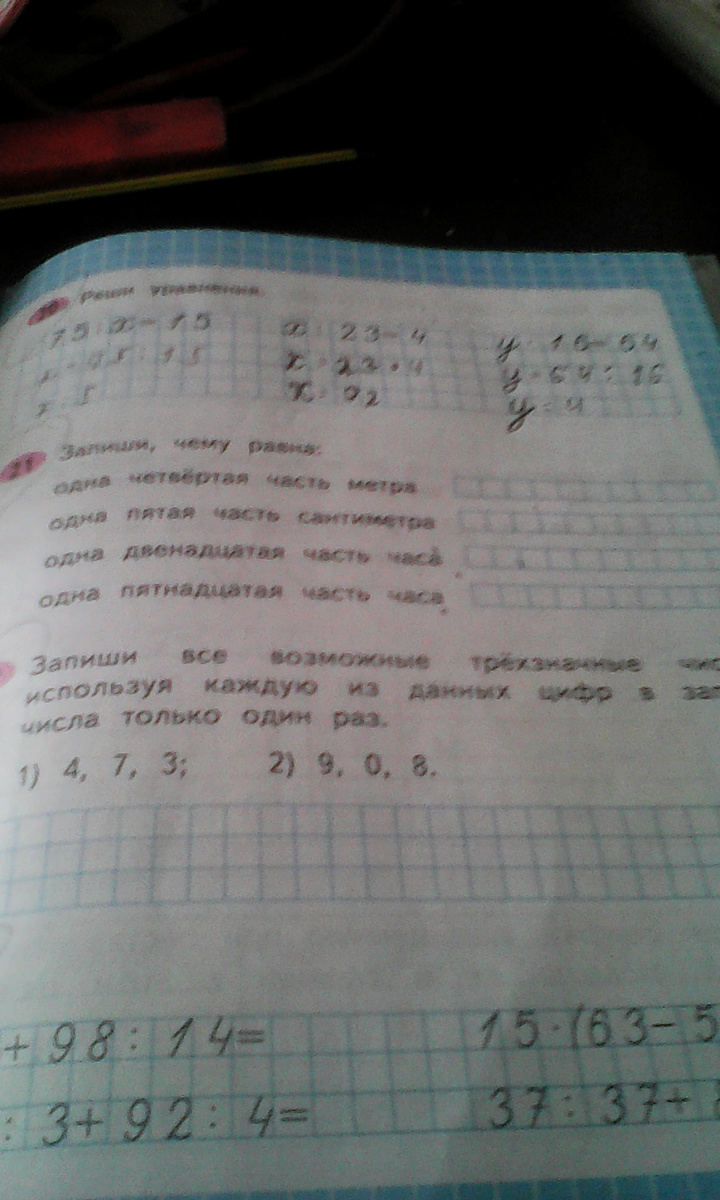 20 Реши уравнения.
75 : x = 15 x : 23 = 4 y · 16 = 64
x = 75 : 15 x = 23 · 4 y = 64 : 16
x = 5 x = 92 y = 4
21 Запиши, чему равна:
одна четвёртая часть метра
одна пятая часть сантиметра
одна двенадцатая часть часа
одна пятнадцатая часть часа
Запиши все возможные трёхзначные
используя каждую из данных цифр в
числа только один раз.
1) 4, 7, 3; 2) 9, 0, 8.
+ 98 : 14 = 15 · (63 − 5
: 3 + 92 : 4 = 37 : 37 +